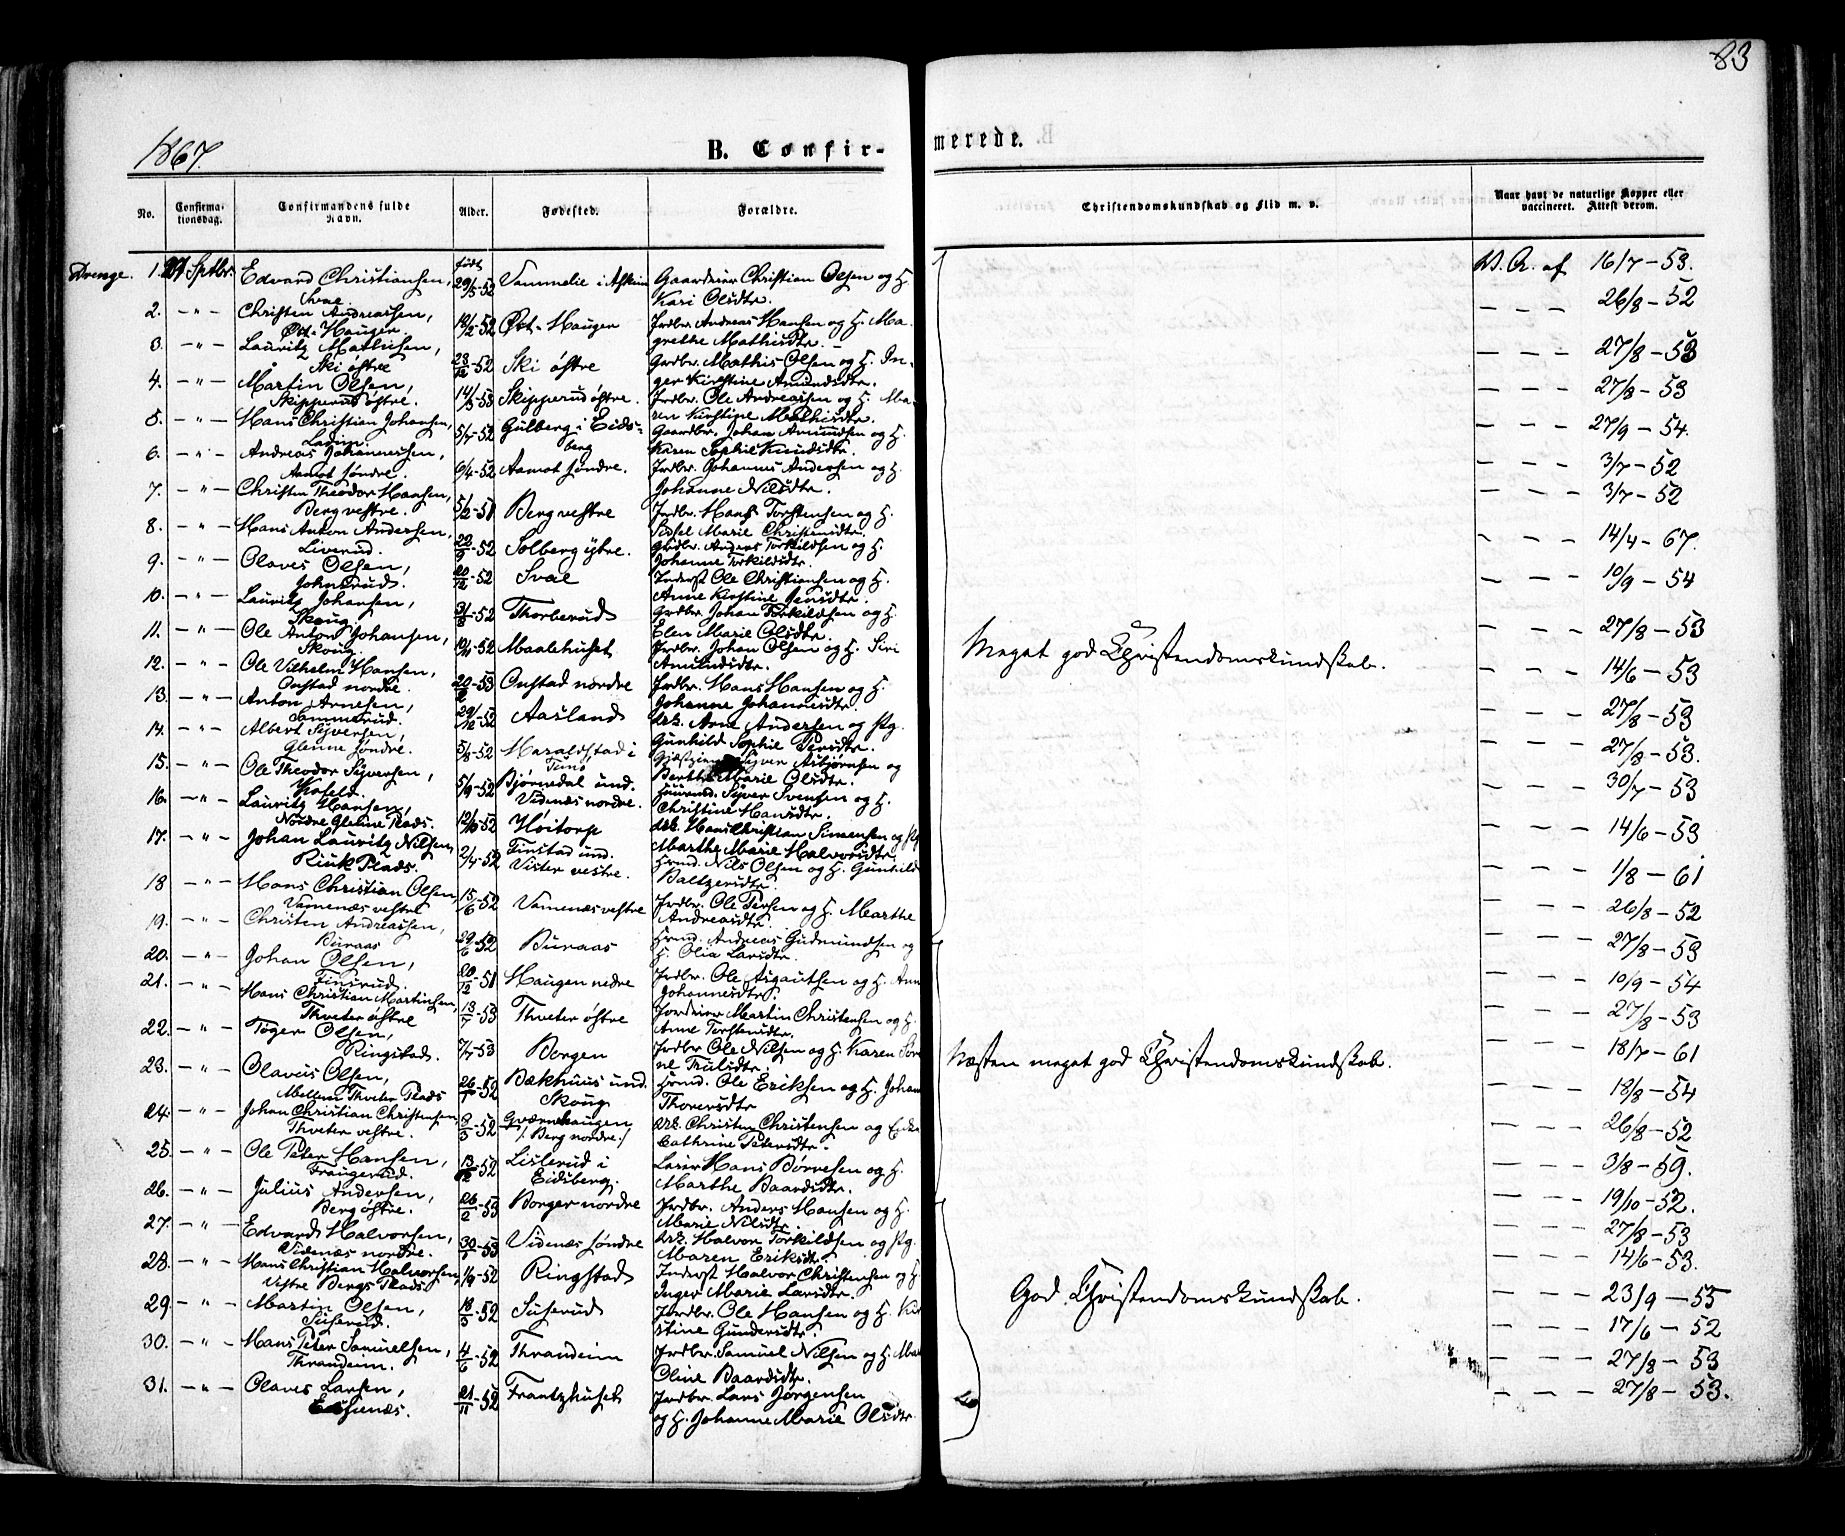 83
1867.
B. Confir-
merede.
No.
Confirma-
tionsdag.
Confirmandens fulde
Navn.
Alder.
Fødested.
Forældre.
Christendomskundskab og Flid m. v.
Naar havt de naturlige Kopper eller
vaccineret. Attest derom.
Drenge. 1. Sptbr. Edvard Christiansen, født 29/5-52 Gaardeier Christian Olsen og H. V. A. af 16/7-53.
Svae. Kari Olsdtr.
2. -"- Christen Andreassen, 18/2-52 Øst-Hauger Jrdbr. Andreas Hansen og H. Ma- - - - 26/8-52
Øst-Hauger. grethe Mathisdtr.
3. -"- Lauritz Mathisen, -52 Ski østre Grdbr. Mathis Olsen og H. In- - - - 27/8-53
Ski østre ger Kirstine Amundsdtr.
4. -"- Martin Olsen, 14/3-53 Skipperud østre. Jrdbr. Ole Andreassen og H. Ma- - - - 27/8-53
Skipperud østre. ren Kirstine Mathisdtr.
5. -"- Hans Christian Johansen, 5/7-52 Gulberg i Eids- Gaardbr. Johan Amundsen og H. - - - 27/9-54.
berg Karen Sophie Knudsdtr.
6. -"- Andreas Johannessen, 6/4-52 Aamot søndre. Jrdbr. Johannes Andersen og H. - - - 3/7-52
Aamot søndre. Johanne Nilsdtr.
7. -"- Christen Theodor Hansen, 5/12-51 Berg vestre Jrdbr. Hans Torstensen og H. - - - 3/7-52
Berg vestre. Sidsel Marie
8. -"- Hans Anton Andersen, 22/9-52 Solberg ytre. Grdbr. Anders Torkildsen og H. - - - 14/4-67.
Liverud. Johanne Torkildsdtr.
9. -"- Olaves Olsen, 20/12-52 Svae Inderst Ole Christiansen og H. - - - 10/9-54
Johnsrud. Anne Kirstine Jensdtr.
10. -"- Lauritz Johansen, 31/8-52 Thorberud Grdbr. Johan Torkildsen og H. - - - 27/8-53
Skoug Elen Marie Olsdtr.
11. -"- Ole Anton Johansen, 19/11-52 Maalehuset Jrdbr. Johan Olsen og H. Siri - - - 14/6-53
Skoug. Amundsdtr.
Meget god Christendomskundskab.
12. -"- Ole Vilhelm Hansen, -53 Onstad nordre Jrdbr. Hans Hansen og H. - - - 27/8-53
Onstad nordre. Johanne Johannesdtr.
13. -"- Anton Arnesen, 29/12-52 Aasland Arb. Arne Andersen og Pg. - - - 27/8-53.
Sommerud. Gunhild Sophie Persdtr.
14. -"- Albert Syversen, 5/8-52 Haraldstad i Syver Asbjørnsen og - - - 30/7-53
Glenne søndre. Berthe Marie Olsdtr.
15. -"- Ole Theodor Syversen, 5/9-52 Bjørnedal und. Huusmd. Syver Svensen og H. - - - 14/6-53
Videnæs nordre. Christine Hansdtr.
16. -"- Lauritz Hansen, 12/10-52 Høitorp Arb. Hans Christian Simensen og Pg - - - 1/8-61
Nordre Glenne Plads. Marthe Marie Halvorsdtr.
17. -"- Johan Lauritz Nilsen, 2/4-52 Finstad und. Hrmd. Nils Olsen og H. Gunhild - - - 26/8-52
Plads. Vister vestre. Baltzersdtr.
18 -"- Hans Christian Olsen, 15/6-52 Vamenæs vestre Jrdbr. Ole Persen og H. Marthe - - - 27/8-53
Vamenæs vestre Andreasdtr.
19. -"- Christen Andreassen, 29/6-52 Buraas Hrmd. Andreas Gudmundsen og - - - 10/9-54
Buraas H. Olia Larsdtr.
20. -"- Johan Olsen, 20/12-51 Haugen nedre Jrdbr. Ole Asgautsen og H. Ann - - - 27/8-53
Finsrud. Johannesdtr.
21. -"- Hans Christian Martinsen, 13/7-53 Thveter østre Jordeier Martin Christensen og H. - - - 18/7-61
Thveter østre Anne Torstensdtr.
22. -"- Toger Olsen, 7/7-53 Borgen Jrdbr Ole Nilsen og H. Karen Sør - - - 18/8-54
Ringstad. ne Trulsdtr.
Næsten meget god Christendomskundskab.
23. -"- Olaves Olsen, -52 Bækhuus und. Hrmd. Ole Eriksen og H. Johan - - - 26/8-52
Mellem Thveter Plads Skoug Thoresdtr
24. -"- Johan Christian Christensen, -52 Gværnhaugen Arb. Christen Christensen og - - - 3/8-59.
Thveter vestre. /: Berg nordre :/ Cathrine Petersdtr.
25. -"- Ole Peter Hansen, -52 Lislerud i Hans Børresen og H. - - - 19/10-52.
Fraugerud. Eidsberg. Marthe Baardsdtr.
26. -"- Julius Andersen, 26/2-53 Borger nordre Jrdbr. Anders Hansen og H. - - - 27/8-53
Berg østre. Marie Nilsdtr.
27. -"- Edvard Halvorsen, -53 Videnæs søndre Arb. Halvor Torkildsen og Pg. - - - 14/6-53.
Videnæs nordre. Maren Eriksdtr.
28. -"- Hans Christian Halvorsen, 1/9-52 Ringstad Inderst Halvor Christensen og H - - - 23/9-55
Vestre Bergs Plads Inger Marie Larsdtr.
God Christendomskundskab.
29. -"- Martin Olsen, 18/5-52 Suserud Jrdbr. Ole Hansen og H. Kir - - - 17/6-52
Suserud. stine Gundersdtr.
30. -"- Hans Peter Samuelsen, 4/6-52 Thrandeim Jrdbr. Samuel Nilsen og H. Mar - - - 27/8-53
Thrandeim. Oline Baardsdtr.
31. -"- Olaves Larsen, 21/11-52 Frantzhuset Jrdbr. Lars Jørgensen - - - 27/8-53.
og H. Johanne Marie Olsdtr.